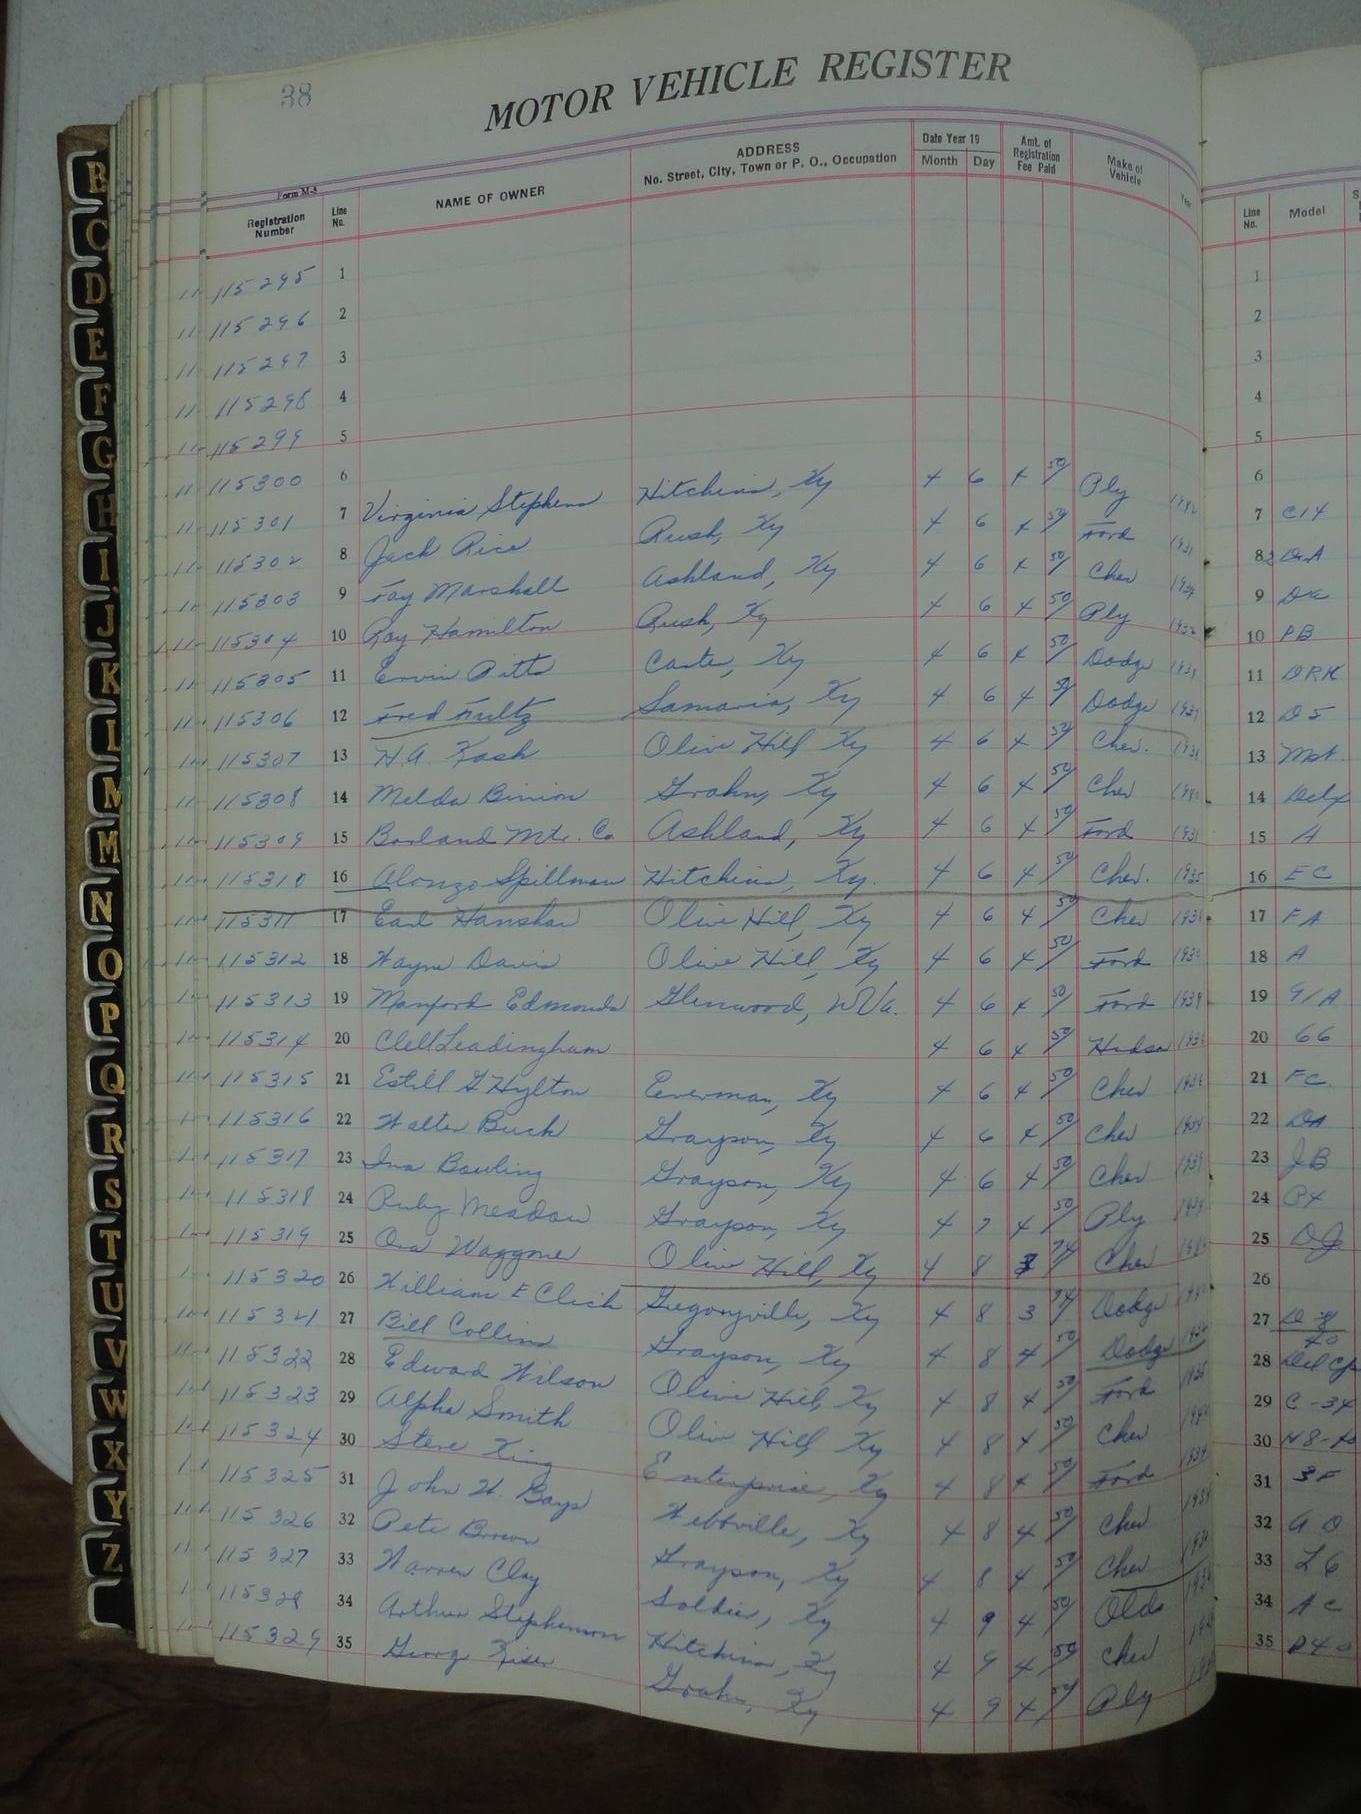 38
MOTOR VEHICLE REGISTER
Form M-4
Registration Number Line No. NAME OF OWNER ADDRESS No. Street, City, Town or P. O., Occupation Date Year 19 Month Day Amt. of Registration Fee Paid Make of Vehicle Year Line No. Model
115295 1 1
115296 2 2
115297 3 3
115298 4 4
115299 5 5
115300 6 6
115301 7 Virginia Stephens Hitchins, Ky 4 6 4 50 Ply 7
115302 8 Jack Rice Rush, Ky 4 6 4 50 Ford 1931 8
115303 9 Fay Marshall Ashland, Ky 4 6 4 50 Chev 9
115304 10 Roy Hamilton Rush, Ky 4 6 4 50 Ply 10 PB
115305 11 Ervin Pitts Carter, Ky 4 6 4 50 Dodge 11
115306 12 Fred Fultz Samaria, Ky 4 6 4 50 Dodge 12 D5
115307 13 H.A. Kash Olive Hill Ky 4 6 4 50 Chev. 13 Mst.
115308 14 Melda Binion Grahn, Ky 4 6 4 50 Chev 14 Delx
115309 15 Borland Mtr. Co Ashland, Ky 4 6 4 50 Ford 1931 15 A
115310 16 Alonzo Spillman Hitchins, Ky. 4 6 4 50 Chev. 1935 16 EC
115311 17 Earl Hanshaw Olive Hill, Ky 4 6 4 50 Chev 17 FA
115312 18 Wayne Davis Olive Hill, Ky 4 6 4 50 Ford 18 A
115313 19 Manford Edmonds Glenwood, W Va. 4 6 4 50 Ford 1939 19 91A
115314 20 Clell Leadingham 4 6 4 50 Hudson 20 66
115315 21 Estill G Hylton Everman, Ky 4 6 4 50 Chev 21 FC
115316 22 Walter Buck Grayson, Ky 4 6 4 50 Chev 22 DA
115317 23 Ina Bowling Grayson, Ky 4 6 4 50 Chev 1939 23 JB
115318 24 Ruby Meadow Grayson, Ky 4 7 4 50 Ply 24
115319 25 Ora Waggoner Olive Hill, Ky 4 8 3 74 Chev 25
115320 26 William E Click Gregoryville, Ky 4 8 3 74 Dodge 26
115321 27 Bill Collins Grayson, Ky 4 8 4 50 Dodge 27
115322 28 Edward Wilson Olive Hill Ky 4 8 4 50 Ford 28
115323 29 Alpha Smith Olive Hill Ky 4 8 4 50 Chev 29
115324 30 Steve King Enterprise, Ky 4 8 4 50 Ford 30
115325 31 John H. Bays Webbville, Ky 4 8 4 50 Chev 31
115326 32 Pete Brown Grayson, Ky 4 8 4 50 Chev 32
115327 33 Warren Clay Soldier, Ky 4 9 4 50 Olds 33 L6
115328 34 Arthur Stephenson Hitchins, Ky 4 9 4 50 Chev 34
115329 35 George Kiser Grahn, Ky 4 9 4 50 Ply 35
B
C
D
E
F
G
H
I
J
K
L
M
M
N
O
P
Q
R
S
T
U
V
W
X
Y
Z